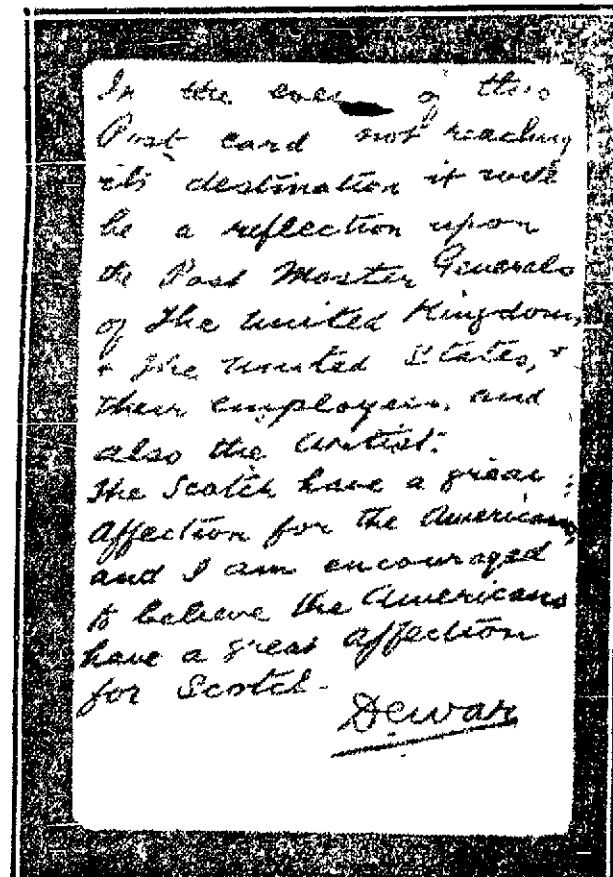 In the even of this
Post card not reaching
its destination it will
be a reflection upon
the Post Master Generals
of the United Kingdom,
+ the United States, +
their employees, and
also the artist.
The Scotch have a great
affection for the Americans,
and I am encouraged
to believe the Americans
have a great affection
for Scotch.
Dewar